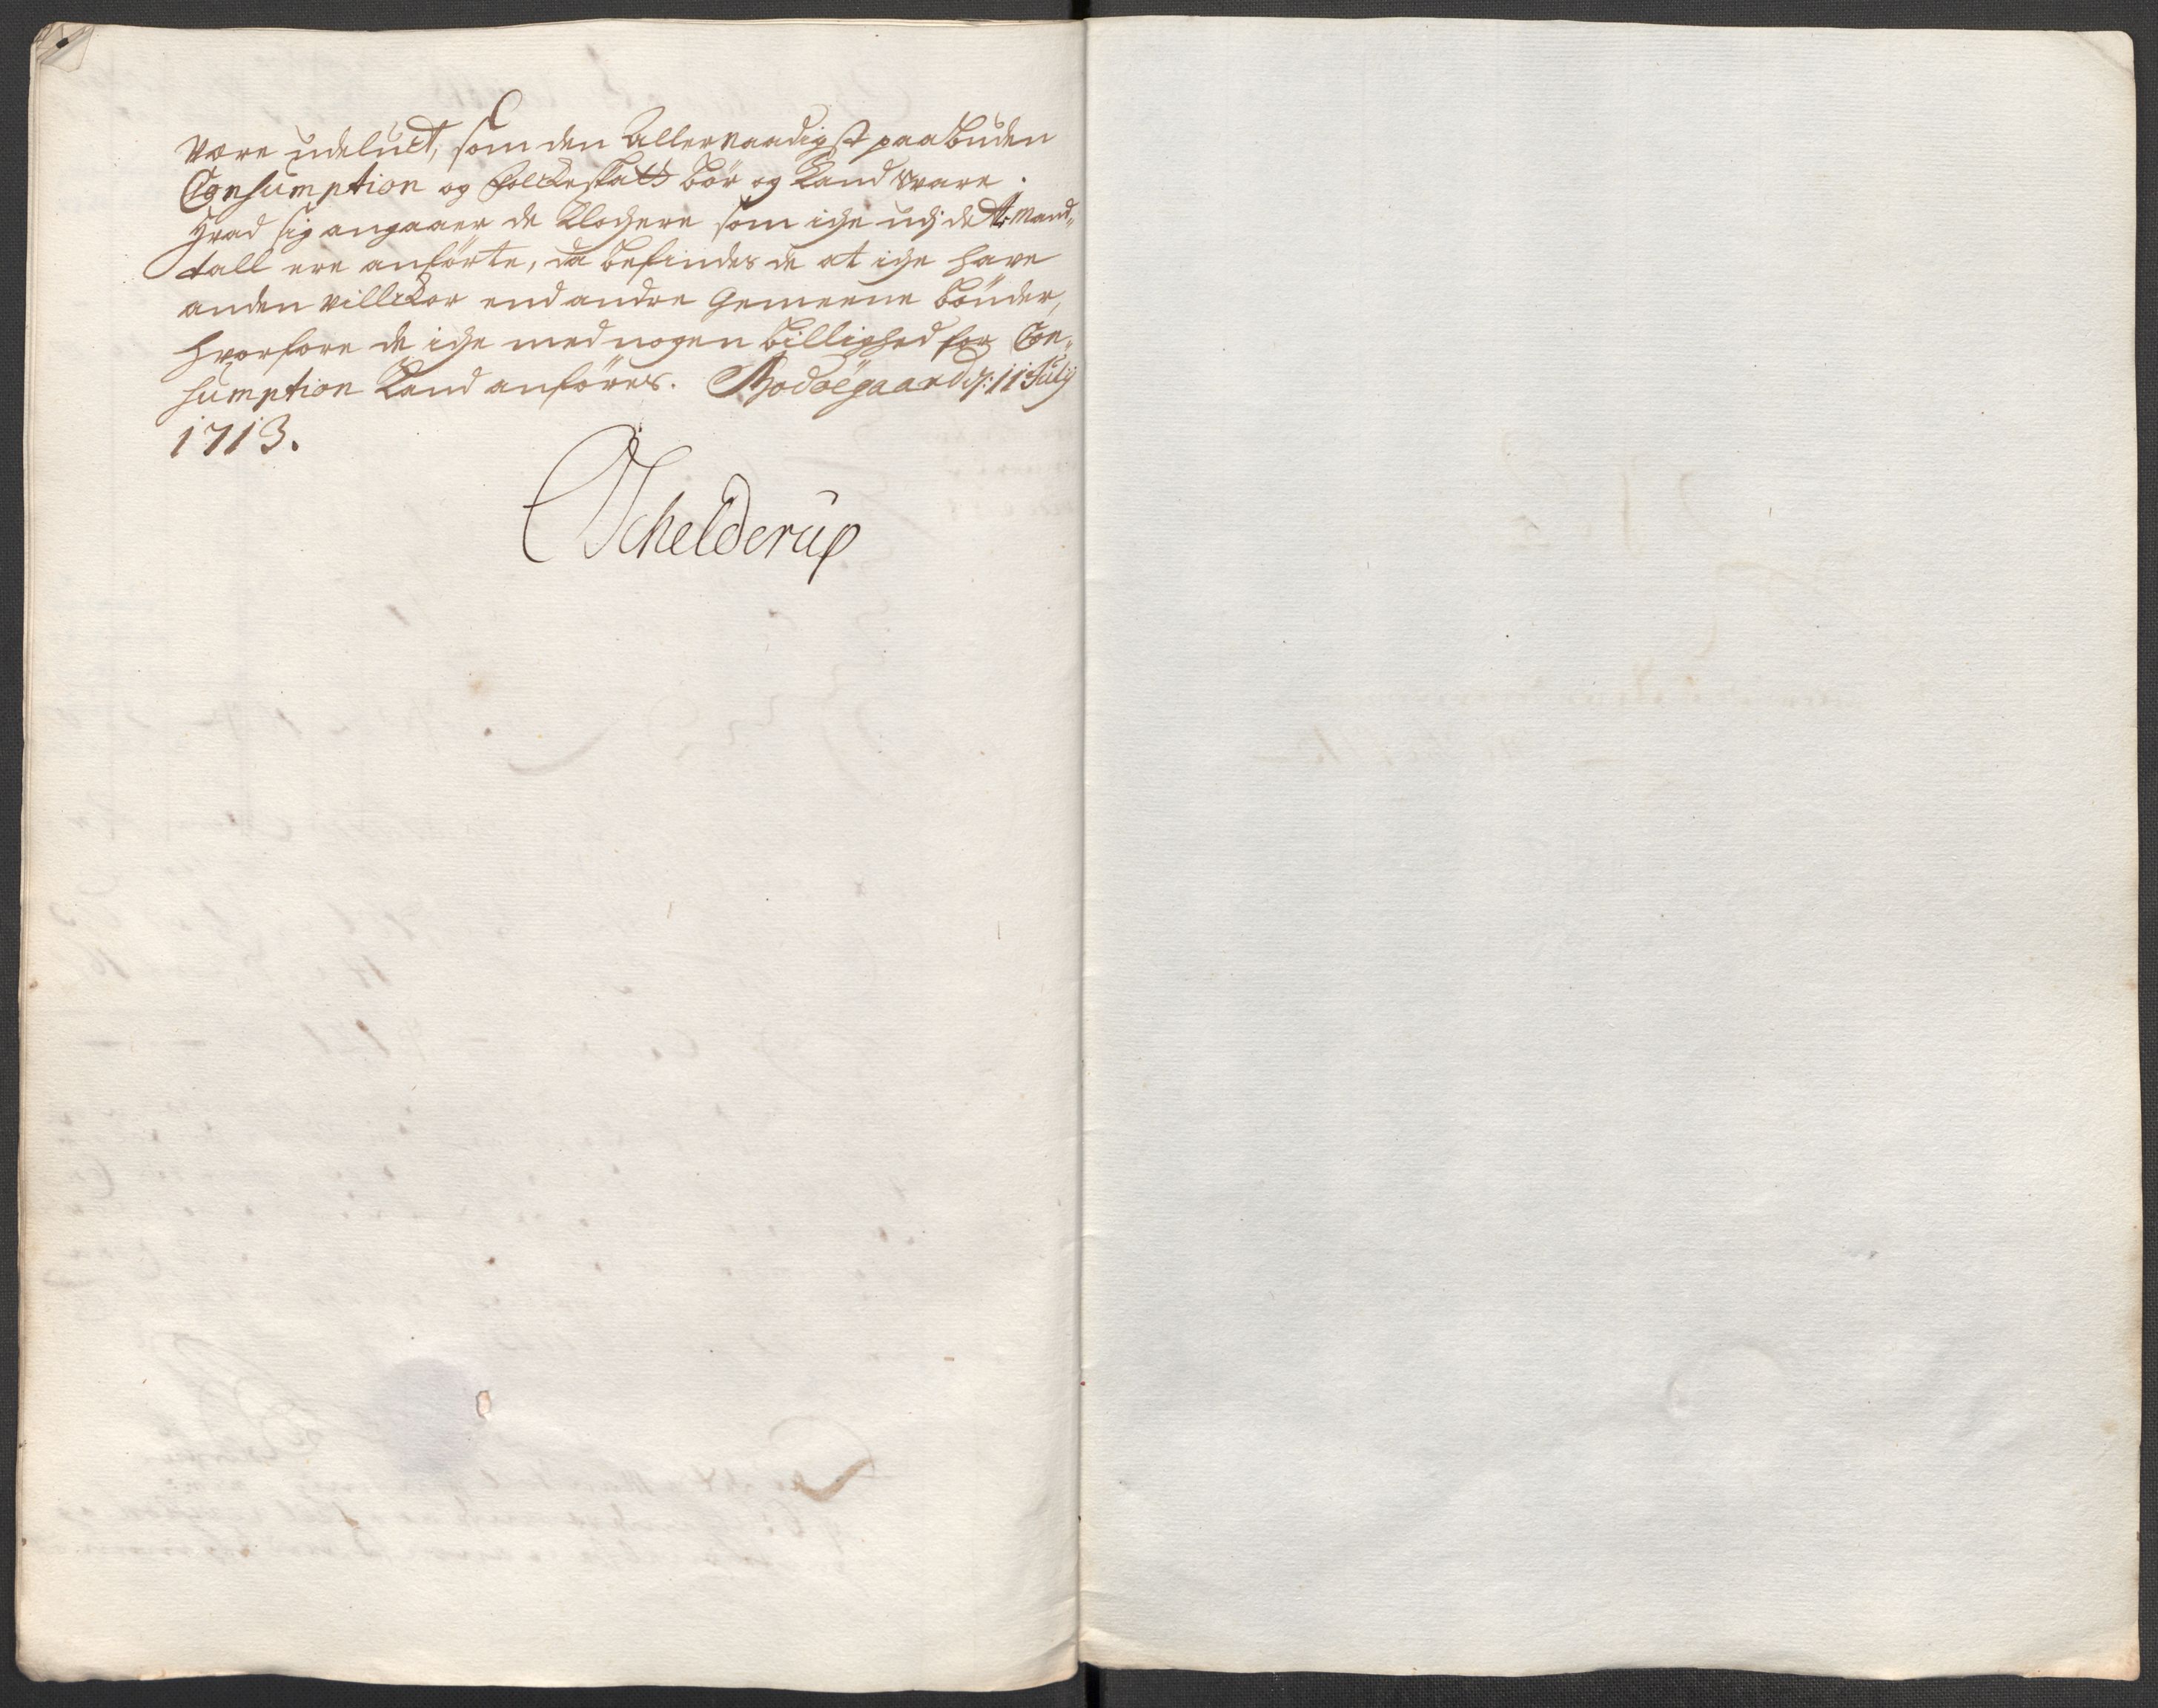 være udeluct, som den Allernaadigst paabuden
Consumption og folckeskatt bör og kand svare.
Hvad sig angaaer de Klochere som iche udj dette Mand„
tall ere anförte, da befindes de at iche have
anden villckor end andre Gemeene bönder,
hvorfore de iche med nogen billighed for Con„
sumption kand anföres. Bodöegaard d: 11 Julij
1713.
Schelderup